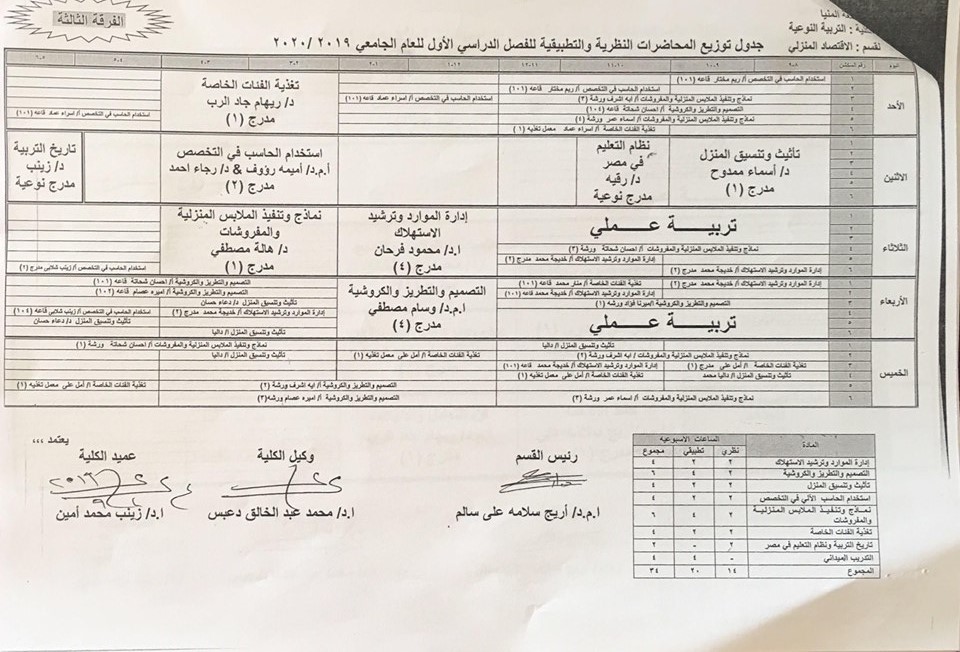 الفرقة الثالثة
المنيا
التربية النوعية
قسم : الاقتصاد المنزلي
جدول توزيع المحاضرات النظرية والتطبيقية للفصل الدراسي الأول للعام الجامعي ٢٠١٩ /٢٠٢٠
اليوم
رقم السكشن
٨-٩
٩-١٠
١٠-١١
١١-١٢
١٢-١
١-٢
٢-٣
٣-٤
٤-٥
٥-٦
الأحد
١
استخدام الحاسب في التخصص /ا ريم مختار قاعه (١٠١)
٢
استخدام الحاسب في التخصص /ا ريم مختار قاعه (١٠١)
٣
نماذج وتنفيذ الملابس المنزلية والمفروشات /ا ايه اشرف ورشة (٣)
استخدام الحاسب في التخصص /ا اسراء عماد قاعه (١٠١)
٤
التصميم والتطريز والكروشية /ا إحسان شحاتة قاعه (١٠٤)
٥
نماذج وتنفيذ الملابس المنزلية والمفروشات /ا اسماء عمر ورشة (٤)
استخدام الحاسب في التخصص /ا اسراء عماد قاعه (١٠١)
٦
تغذية الفئات الخاصة /ا اسراء عماد معمل تغذية (١)
تغذية الفئات الخاصة
د/ ريهام جاد الرب
مدرج (١)
الاثنين
تأثيث وتنسيق المنزل
د/ أسماء ممدوح
مدرج (١)
نظام التعليم
في مصر
د/ رقيه
مدرج نوعية
استخدام الحاسب في التخصص
أ.م.د/ أميمه رؤوف & د/ رجاء احمد
مدرج (٢)
تاريخ التربية
د/ زينب
مدرج نوعية
الثلاثاء
تربية عملي
نماذج وتنفيذ الملابس المنزلية والمفروشات /ا احسان شحاتة ورشة (٣)
إدارة الموارد وترشيد الاستهلاك /ا خديجة محمد مدرج (٢)
إدارة الموارد وترشيد الاستهلاك /ا خديجة محمد مدرج (٢)
إدارة الموارد وترشيد
الاستهلاك
ا.د/ محمود فرحان
مدرج (٤)
نماذج وتنفيذ الملابس المنزلية
والمفروشات
د/ هالة مصطفي
مدرج (١)
استخدام الحاسب في التخصص /ا زينب شلابى مدرج (٢)
الأربعاء
إدارة الموارد وترشيد الاستهلاك /ا خديجة محمد مدرج (٢)
تغذية الفئات الخاصة /ا منار محمد قاعه (١٠١)
إدارة الموارد وترشيد الاستهلاك /ا خديجة محمد قاعه (١٠١)
التصميم والتطريز والكروشية /ا ميرنا فؤاد ورشه (١)
تربية عملي
التصميم والتطريز والكروشية
ا.م.د/ وسام مصطفي
مدرج (٤)
التصميم والتطريز والكروشية /ا إحسان شحاتة قاعه (١٠١)
التصميم والتطريز والكروشية /ا اميره عصام قاعه (١٠٢)
تأثيث وتنسيق المنزل د/ دعاء حسان
إدارة الموارد وترشيد الاستهلاك /ا خديجة محمد مدرج (٢)
استخدام الحاسب في التخصص /ا زينب شلابى قاعه (١٠٤)
تأثيث وتنسيق المنزل /ا داليا
تأثيث وتنسيق المنزل د/ دعاء حسان
الخميس
١
تأثيث وتنسيق المنزل /ا داليا
نماذج وتنفيذ الملابس المنزلية والمفروشات /ا احسان شحاتة ورشة (١)
٢
نماذج وتنفيذ الملابس المنزلية والمفروشات /ا ايه اشرف ورشة (٢)
تغذية الفئات الخاصة /ا أمل على معمل تغذيه (١)
تأثيث وتنسيق المنزل /ا داليا
٣
تغذية الفئات الخاصة /ا أمل على مدرج (١)
إدارة الموارد وترشيد الاستهلاك /ا خديجة محمد قاعه (١٠١)
٤
تأثيث وتنسيق المنزل /ا داليا محمد
تغذية الفئات الخاصة /ا أمل على معمل تغذيه (١)
٥
التصميم والتطريز والكروشية /ا ايه اشرف ورشة (٢)
تغذية الفئات الخاصة /ا أمل على معمل تغذيه (١)
٦
نماذج وتنفيذ الملابس المنزلية والمفروشات /ا اسماء عمر ورشة (٤)
التصميم والتطريز والكروشية /ا اميره عصام ورشه(٣)
المادة
الساعات الاسبوعيه
نظري
تطبيقي
مجموع
إدارة الموارد وترشيد الاستهلاك ٢ ٢ ٤
التصميم والتطريز والكروشية ٢ ٤ ٦
تأثيث وتنسيق المنزل ٢ ٢ ٤
استخدام الحاسب الآلي في التخصص ٢ ٢ ٤
نماذج وتنفيذ الملابس المنزلية ٢ ٤ ٦
والمفروشات
تغذية الفئات الخاصة ٢ ٢ ٤
تاريخ التربية ونظام التعليم في مصر ٢ - ٢
التدريب الميداني - ٤ ٤
المجموع ١٤ ٢٠ ٣٤
يعتمد ،،،
رئيس القسم
وكيل الكلية
عميد الكلية
ا.م.د/ أريج سلامه على سالم
ا.د/ محمد عبد الخالق دعبس
ا.د/ زينب محمد أمين